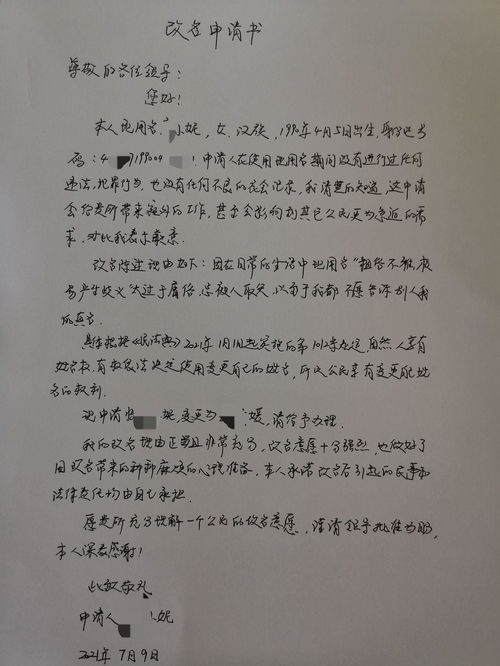 改名申请书
尊敬的各位领导：
您好！
本人现用名：小妮，女，汉族，1990年4月5日出生，身份证号
码：4 199004 ！申请人在使用现用名期间没有进行过任何
违法，犯罪行为，也没有任何不良的社会记录，我清楚的知道，这申请
会给贵所带来额外的工作，甚至会影响到其它公民更为急迫的需
求，对此我表示歉意．
改名陈述理由如下：因在日常的生活中现用名“粗俗不雅，
产生歧义”太过于庸俗，总被人取笑，以至于我都不愿告诉别人我
的真名．
具体根据《民法典》2021年1月1日起实施的第1012条规定，自然人享有
姓名权，有权依法决定、使用变更自己的姓名，所以公民享有变更姓
名的权利．
现申请 妮，变更为 媛，请给予办理．
我的改名理由正当且非常充分，改名意愿十分强烈，也做好了
因改名带来的种种麻烦的心理准备，本人承诺改名后引起的民事和
法律责任均由自己承担．
愿贵所充分理解一个公民的改名意愿，谨请领导批准为盼，
本人深表感谢！
此致敬礼
申请人 妮
2021年7月9日